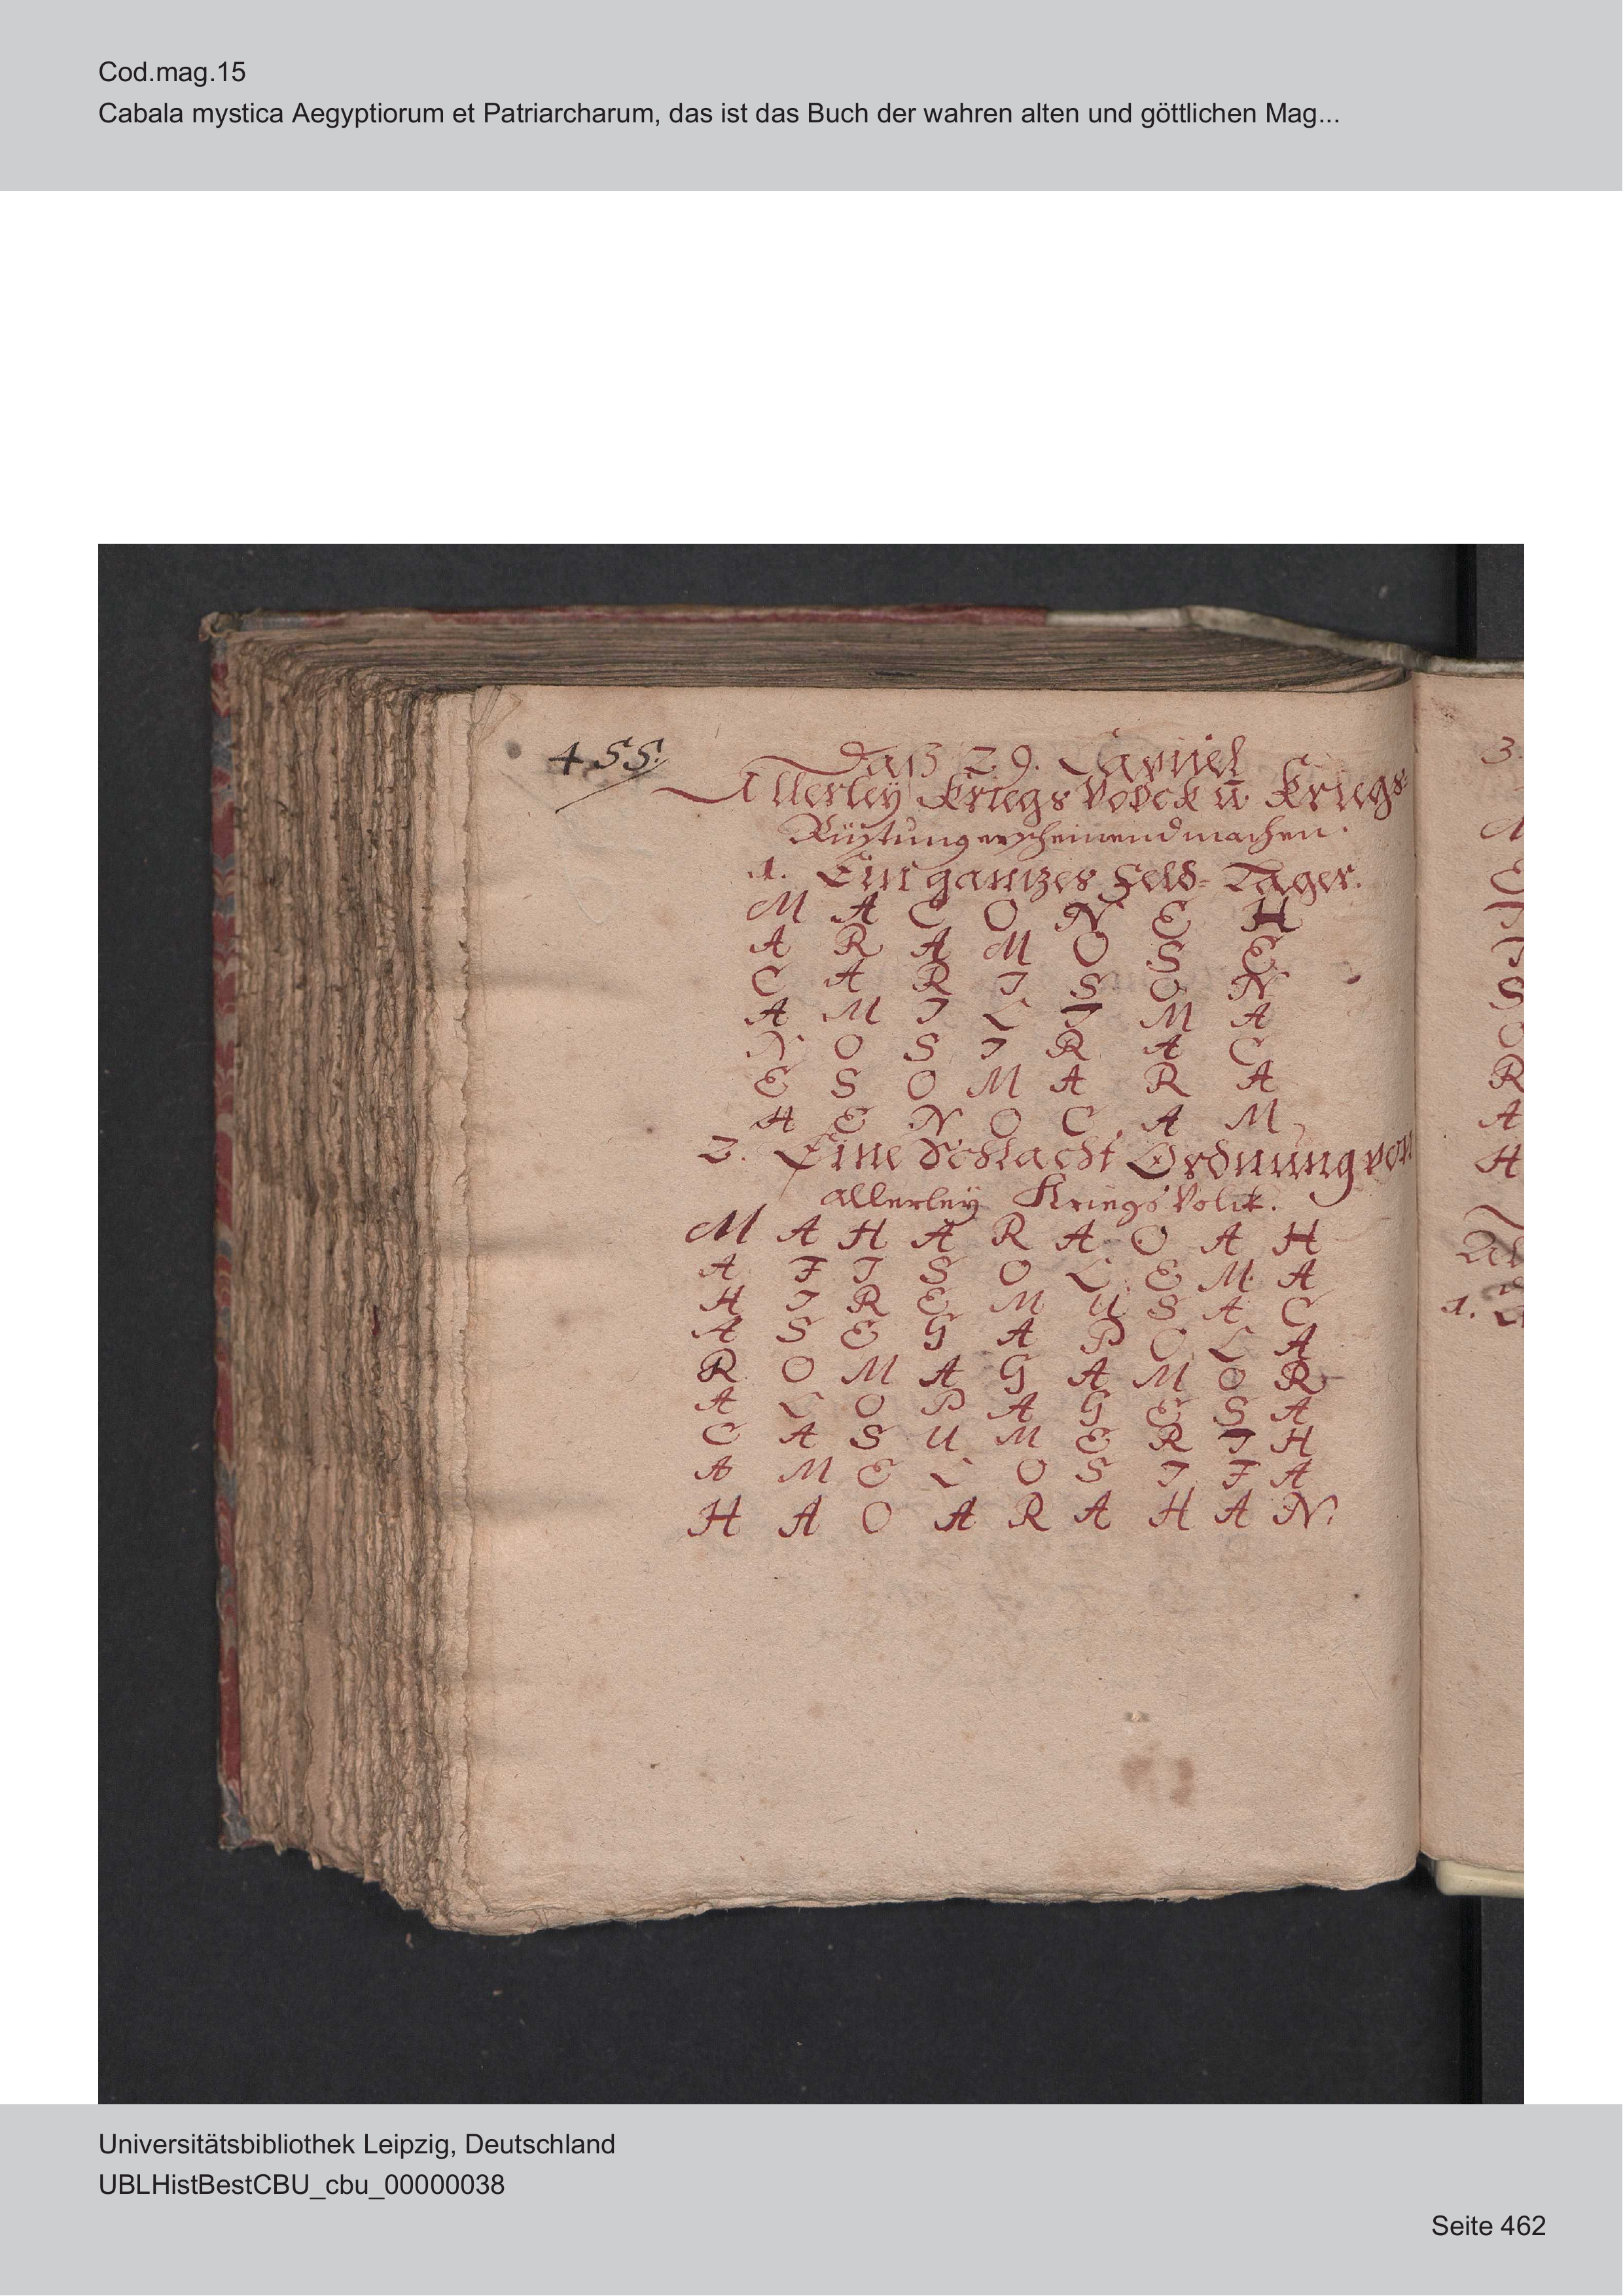 Cod.mag.15
Cabala mystica Aegyptiorum et Patriarcharum, das ist das Buch der wahren alten und göttlichen Mag...
455.
Daß 29. Capitel
Allerley Kriegs Volck u. Kriegs-
Rüstung erscheinend machen.
1. Ein gantzes Feld-Lager.
M A C O N E H
A R A M O S E
C A R I S O N
A M I L I M A
N O S I R A C
E S O M A R A
H E N O C A M
2. Eine Schlacht Ordnung von
allerley Kriegs Volck.
M A H A R A O A H
A F I S O L E M A
H I R E M U S A C
A S E G A P O L A
R O M A G A M O R
A L O P A G E S A
C A S U M E R I H
A M E L O S I F A
H A O A R A H A N.
3.
R
A
H
1.
Universitätsbibliothek Leipzig, Deutschland
UBLHistBestCBU_cbu_00000038
Seite 462